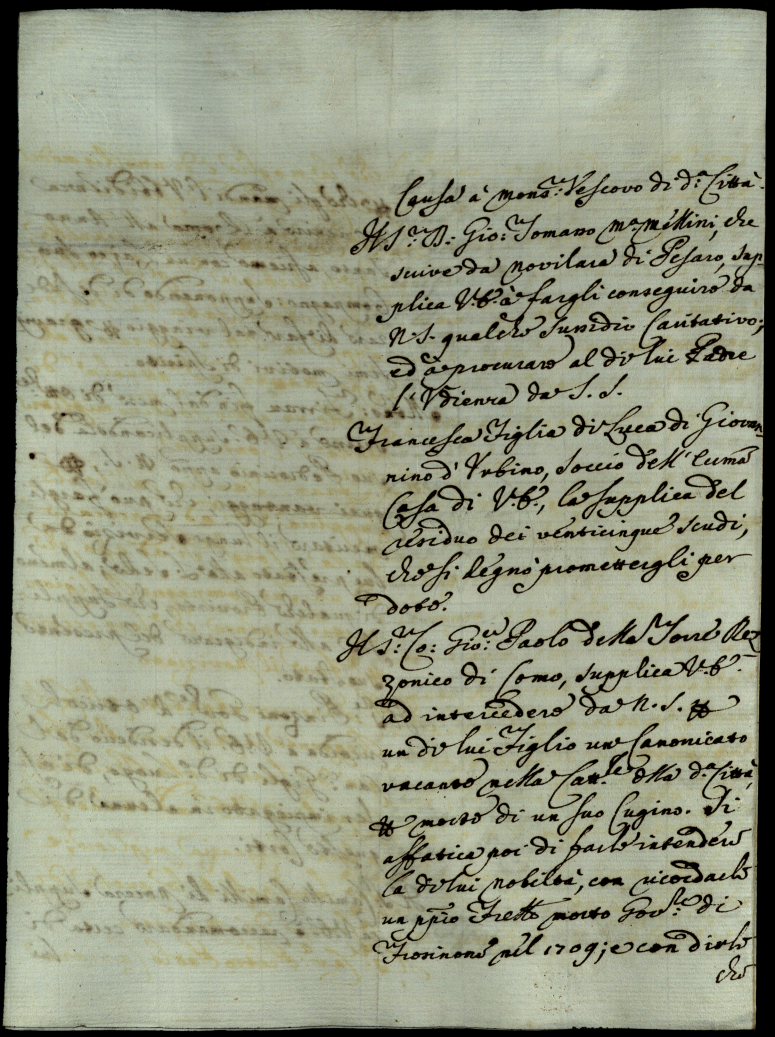 Causa à Mons.r Vescovo di d.a Città.
Il S.r D. Gio: Tomaso Mellini, che
scrive da Novilara di Pesaro, sup-
plica V.E. à fargli conseguire da
N.S. qualche sussidio Caritativo;
ed à procurare al di lui Padre
l'Udienza da S.S.
Francesca Figlia di Luca di Giovan-
nino d'Urbino, soccio dell'Ecc.ma
Casa di V.E., la supplica del
residuo dei venticinque scudi,
che si degnò promettergli per
dote.
Il S.r Co: Gio: Paolo della Torre Rez-
zonico di Como, supplica V.E.
ad intercedere da N.S. per
un di lui Figlio un Canonicato
vacante nella Catt.le della d.a Città,
per morte di un suo Cugino. Si
affatica poi di farle intendere
la di lui nobiltà, con ricordarle
un pprio Fretto morto Gov.re di
Frosinone nel 1709; e con dirle
che